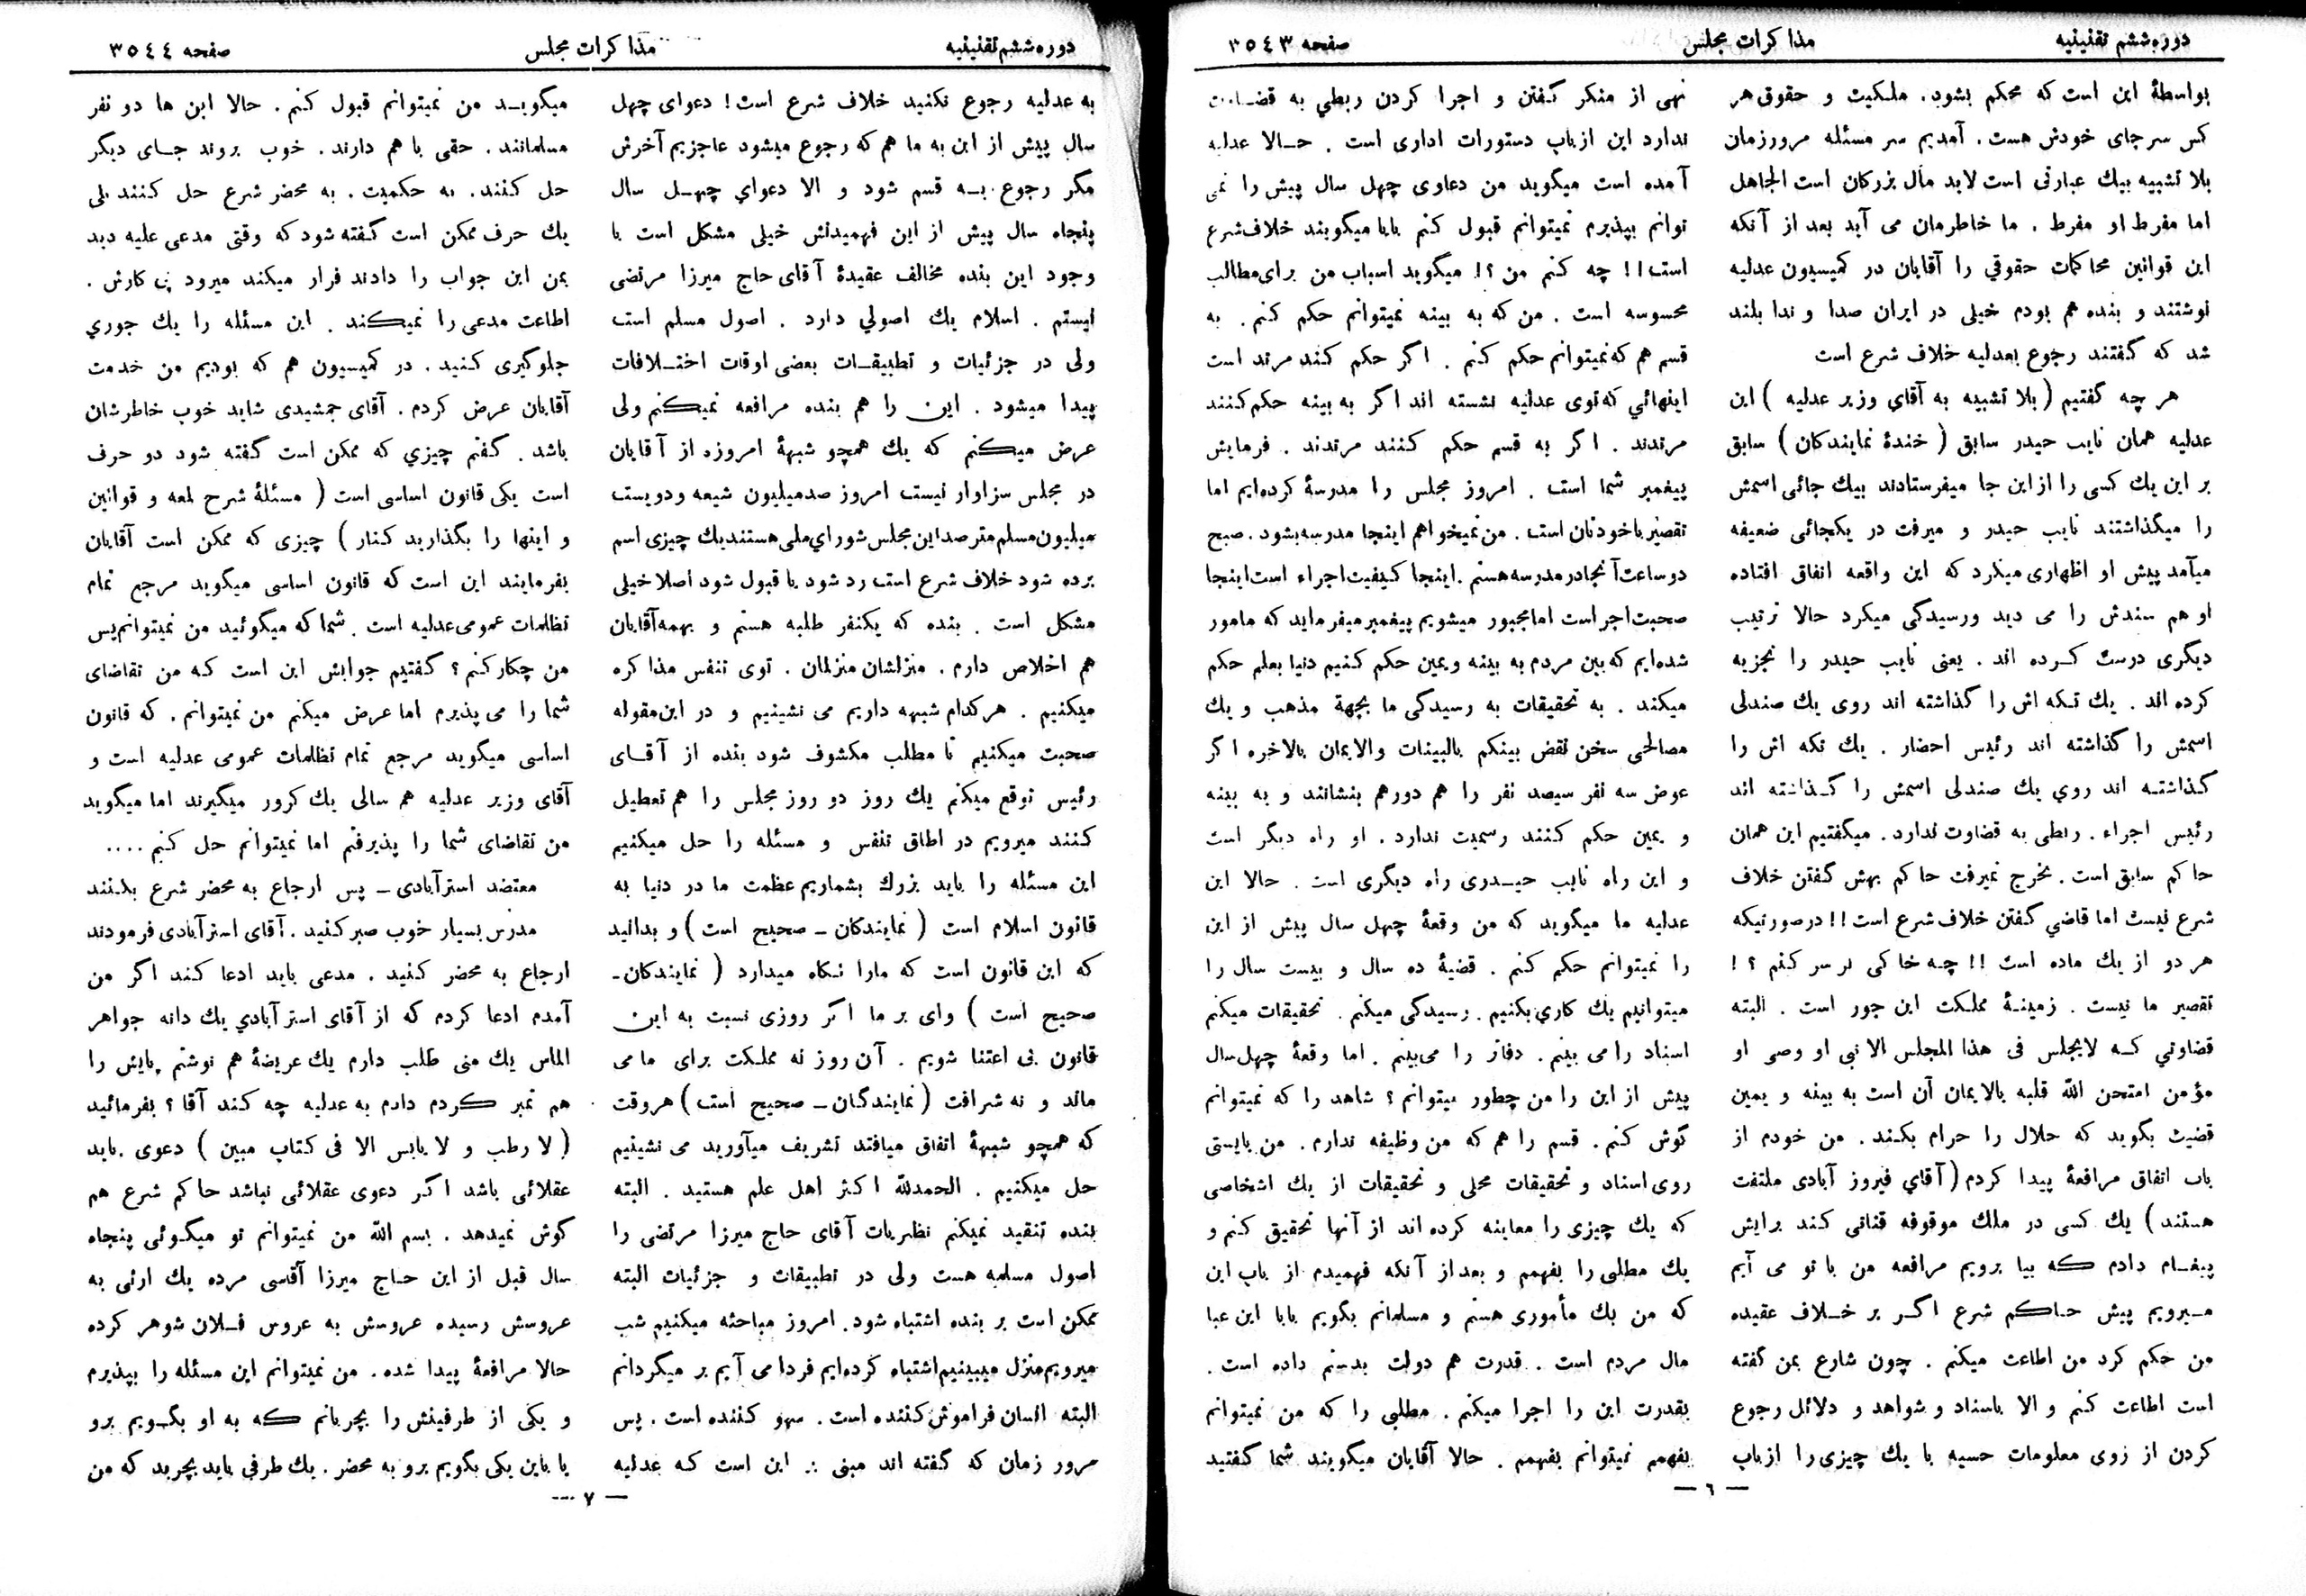 دوره ششم تقنینیه
مذاکرات مجلس
صفحه ۳۵٤۳
بواسطهٔ این است که محکم بشود. ملکیت و حقوق هر
کس سرجای خودش هست. آمدیم سر مسئله مرورزمان
بلا تشبیه بیك عبارتی است لابد مال بزرکان است الجاهل
اما مفرط او مفرط . ما خاطرمان می آید بعد از آنکه
این قوانین محاکمات حقوقي را آقایان در کمیسیون عدلیه
نوشتند و بنده هم بودم خیلی در ایران صدا و ندا بلند
شد که گفتند رجوع بعدلیه خلاف شرع است
هر چه گفتیم ( بلا تشبیه به آقای وزیر عدلیه ) این
عدلیه همان نایب حیدر سابق ( خندهٔ نمایندکان ) سابق
بر این یك کسی را از این جا میفرستادند بیك جائی اسمش
را میگذاشتند نایب حیدر و میرفت در یکجائی ضعیفه
میآمد پیش او اظهاری میکرد که این واقعه اتفاق افتاده
او هم سندش را می دید ورسیدگی میکرد حالا ترتیب
دیگری درست کرده اند . یعنی نایب حیدر را تجزیه
کرده اند . یك تکه اش را گذاشته اند روی یك صندلی
اسمش را گذاشته اند رئیس احضار . یك تکه اش را
گذاشته اند روي یك صندلی اسمش را گذاشته اند
رئیس اجراء . ربطی به قضاوت ندارد. میگفتیم این همان
حاکم سابق است . بخرج نمیرفت حاکم بهش گفتن خلاف
شرع نیست اما قاضي گفتن خلاف شرع است !! درصورتیکه
هر دو از یك ماده است !! چه خاکی بر سر کنم ؟ !
تقصیر ما نیست . زمینهٔ مملکت این جور است . البته
قضاوتي که لایجلس فی هذا المجلس الا نبی او وصی او
مؤمن امتحن الله قلبه بالایمان آن است به بینه و یمین
قضیت بگوید که حلال را حرام بکند . من خودم از
باب اتفاق مرافعهٔ پیدا کردم ( آقاي فیروز آبادی ملتفت
هستند ) یك کسی در ملك موقوفه قناتی کند برایش
پیغام دادم که بیا برویم مرافعه من با تو می آیم
میرویم پیش حاکم شرع اگر بر خلاف عقیده
من حکم کرد من اطاعت میکنم . چون شارع بمن گفته
است اطاعت کنم و الا باسناد و شواهد و دلائل رجوع
کردن از روی معلومات حسیه با یك چیزی را از باب
نهی از منکر گفتن و اجرا کردن ربطي به قضاوت
ندارد این از باب دستورات اداری است . حالا عدلیه
آمده است میگوید من دعاوی چهل سال پیش را نمی
توانم بپذیرم نمیتوانم قبول کنم بابا میگویند خلاف شرع
است !! چه کنم من ؟! میگوید اسباب من برای مطالب
محسوسه است . من که به بینه نمیتوانم حکم کنم . به
قسم هم که نمیتوانم حکم کنم . اگر حکم کنند مرتد است
اینهائي که توی عدلیه نشسته اند اگر به بینه حکم کنند
مرتدند . اگر به قسم حکم کنند مرتدند . فرمایش
پیغمبر شما است . امروز مجلس را مدرسهٔ کرده‌ایم اما
تقصیر با خودتان است . من نمیخواهم اینجا مدرسه بشود . صبح
دو ساعت آنجا در مدرسه هستم . اینجا کیفیت اجراء است اینجا
صحبت اجر است اما مجبور میشویم پیغمبر میفرماید که مامور
شده‌ایم که بین مردم به بینه و یمین حکم کنیم دنیا بعلم حکم
میکند . به تحقیقات به رسیدگی ما بجههٔ مذهب و یك
مصالحی سخن نقض بینکم بالبینات والایمان بالاخره اگر
عوض سه نفر سیصد نفر را هم دورهم بنشانند و به بینه
و یمین حکم کنند رسمیت ندارد . او راه دیگر است
و این راه نایب حیدری راه دیگری است . حالا این
عدلیه ما میگوید که من وقعهٔ چهل سال پیش از این
را نمیتوانم حکم کنم . قضیهٔ ده سال و بیست سال را
میتوانیم یك کاري بکنیم . رسیدگی میکنم . تحقیقات میکنم
اسناد را می بینم . دفاتر را می‌بینم . اما وقعهٔ چهل سال
پیش از این را من چطور میتوانم ؟ شاهد را که نمیتوانم
گوش کنم . قسم را هم که من وظیفه ندارم . من بایستی
روی اسناد و تحقیقات محلی و تحقیقات از یك اشخاصی
که یك چیزی را معاینه کرده اند از آنها تحقیق کنم و
یك مطلبی را بفهمم و بعد از آنکه فهمیدم از باب این
که من یك مأموری هستم و مسلمانم بگویم بابا این عبا
مال مردم است . قدرت هم دولت بدستم داده است .
بقدرت این را اجرا میکنم . مطلبی را که من نمیتوانم
بفهمم نمیتوانم بفهمم . حالا آقایان میگویند شما گفتید
— ٦ —
دوره ششم تقنینیه
مذاکرات مجلس
صفحه ۳۵٤٤
به عدلیه رجوع نکنید خلاف شرع است ! دعوای چهل
سال پیش از این به ما هم که رجوع میشود عاجزیم آخرش
مگر رجوع به قسم شود و الا دعواي چهل سال
پنجاه سال پیش از این فهمیدنش خیلی مشکل است با
وجود این بنده مخالف عقیدهٔ آقای حاج میرزا مرتضی
نیستم . اسلام یك اصولي دارد . اصول مسلم است
ولی در جزئیات و تطبیقات بعضی اوقات اختلافات
پیدا میشود . این را هم بنده مرافعه نمیکنم ولی
عرض میکنم که یك همچو شبههٔ امروزه از آقایان
در مجلس سزاوار نیست امروز صدمیلیون شیعه ودویست
میلیون مسلم مترصد این مجلس شوراي ملی هستند یك چیزی اسم
برده شود خلاف شرع است رد شود یا قبول شود اصلا خیلی
مشکل است . بنده که یکنفر طلبه هستم و بهمه آقایان
هم اخلاص دارم . منزلشان منزلمان . توی تنفس مذاکره
میکنیم . هرکدام شبهه داریم می نشینیم و در این مقوله
صحبت میکنیم تا مطلب مکشوف شود بنده از آقای
رئیس توقع میکنم یك روز دو روز مجلس را هم تعطیل
کنند میرویم در اطاق تنفس و مسئله را حل میکنیم
این مسئله را باید بزرك بشماریم عظمت ما در دنیا به
قانون اسلام است ( نمایندکان ــ صحیح است ) و بدانید
که این قانون است که مارا نگاه میدارد ( نمایندکان ــ
صحیح است ) وای بر ما اگر روزی نسبت به این
قانون بی اعتنا شویم . آن روز نه مملکت برای ما می
ماند و نه شرافت ( نمایندگان ــ صحیح است ) هروقت
که همچو شبههٔ اتفاق میافتد تشریف میآورید می نشینیم
حل میکنیم . الحمدلله اکثر اهل علم هستید . البته
بنده تنقید نمیکنم نظریات آقای حاج میرزا مرتضی را
اصول مسلمه هست ولی در تطبیقات و جزئیات البته
ممکن است بر بنده اشتباه شود. امروز مباحثه میکنیم شب
میرویم منزل میبینیم اشتباه کرده‌ایم فردا می آیم بر میگردانم
البته انسان فراموش کننده است . سهو کننده است . پس
مرور زمان که گفته اند مبنی بر این است که عدلیه
میگوید من نمیتوانم قبول کنم . حالا این ها دو نفر
مسلمانند . حقی با هم دارند . خوب بروند جای دیگر
حل کنند . به حکمیت . به محضر شرع حل کنند بلی
یك حرف ممکن است گفته شود که وقتی مدعی علیه دید
بمن این جواب را دادند فرار میکند میرود پی کارش .
اطاعت مدعی را نمیکند . این مسئله را یك جوري
جلوگیری کنید . در کمیسیون هم که بودیم من خدمت
آقایان عرض کردم . آقای جمشیدی شاید خوب خاطرشان
باشد . گفتم چیزي که ممکن است گفته شود دو حرف
است یکی قانون اساسی است ( مسئلهٔ شرح لمعه و قوانین
و اینها را بگذارید کنار ) چیزی که ممکن است آقایان
بفرمایند این است که قانون اساسی میگوید مرجع تمام
تظلمات عمومی عدلیه است . شما که میگوئید من نمیتوانم پس
من چکار کنم ؟ گفتیم جوابش این است که من تقاضای
شما را می پذیرم اما عرض میکنم من نمیتوانم . که قانون
اساسی میگوید مرجع تمام تظلمات عمومی عدلیه است و
آقای وزیر عدلیه هم سالی یك کرور میگیرند اما میگوید
من تقاضای شما را پذیرفتم اما نمیتوانم حل کنم ....
معتضد استرآبادی ــ پس ارجاع به محضر شرع بکنند
مدرس بسیار خوب صبر کنید . آقای استرآبادی فرمودند
ارجاع به محضر کنید . مدعی باید ادعا کند اگر من
آمدم ادعا کردم که از آقای استرآبادي یك دانه جواهر
الماس یك منی طلب دارم یك عریضهٔ هم نوشتم پایش را
هم تمبر کردم دادم به عدلیه چه کند آقا ؟ بفرمائید
( لا رطب و لا یابس الا فی کتاب مبین ) دعوی باید
عقلائی باشد اگر دعوی عقلائی نباشد حاکم شرع هم
گوش نمیدهد . بسم الله من نمیتوانم تو میگوئی پنجاه
سال قبل از این حاج میرزا آقاسی مرده یك ارثی به
عروسش رسیده عروسش به عروس فلان شوهر کرده
حالا مرافعهٔ پیدا شده . من نمیتوانم این مسئله را بپذیرم
و یکی از طرفینش را بچربانم که به او بگویم برو
یا باین یکی بگویم برو به محضر . یك طرفی باید بچربد که من
— ۷ —